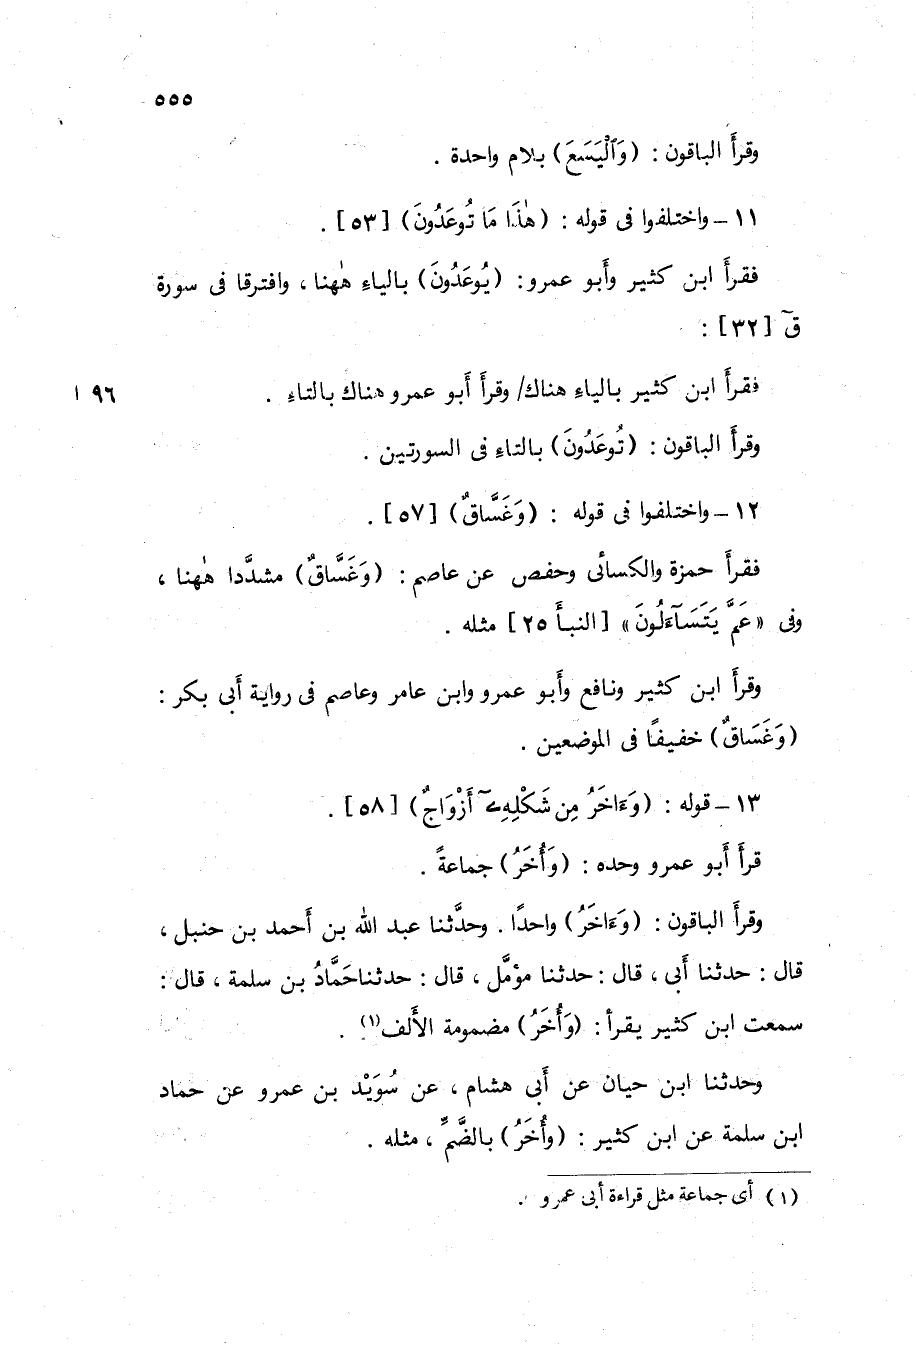 ٥٥٥
وقرأ الباقون : (وَٱلْيَسَعَ) بلام واحدة .
١١ – واختلفوا فى قوله : (هٰذَا مَا تُوعَدُونَ) [٥٣] .
فقرأ ابن كثير وأبو عمرو: (يُوعَدُونَ) بالياء هٰهنا ، وافترقا فى سورة
قٓ [٣٢] :
فقرأ ابن كثير بالياء هناك/ وقرأ أبو عمرو هناك بالتاء . ٩٦ ا
وقرأ الباقون : (تُوعَدُونَ) بالتاء فى السورتين .
١٢ – واختلفوا فى قوله : (وَغَسَّاقٌ) [٥٧] .
فقرأ حمزة والكسائى وحفص عن عاصم : (وَغَسَّاقٌ) مشدَّدا هٰهنا ،
وفى «عَمَّ يَتَسَآءَلُونَ» [النبأ ٢٥] مثله .
وقرأ ابن كثير ونافع وأبو عمرو وابن عامر وعاصم فى رواية أبى بكر :
(وَغَسَاقٌ) خفيفًا فى الموضعين .
١٣ – قوله : (وَءَاخَرُ مِن شَكْلِهِۦٓ أَزْوَاجٌ) [٥٨] .
قرأ أبو عمرو وحده : (وَأُخَرُ) جماعةً .
وقرأ الباقون : (وَءَاخَرُ) واحدًا . وحدَّثنا عبد الله بن أحمد بن حنبل ،
قال : حدثنا أبى ، قال : حدثنا مؤمَّل ، قال : حدثنا حَمَّادُ بن سلمة ، قال :
سمعت ابن كثير يقرأ : (وَأُخَرُ) مضمومة الألف(١) .
وحدثنا ابن حيان عن أبى هشام ، عن سُوَيْد بن عمرو عن حماد
ابن سلمة عن ابن كثير : (وأُخَرُ) بالضَّمِّ ، مثله .
(١) أى جماعة مثل قراءة أبى عمرو .